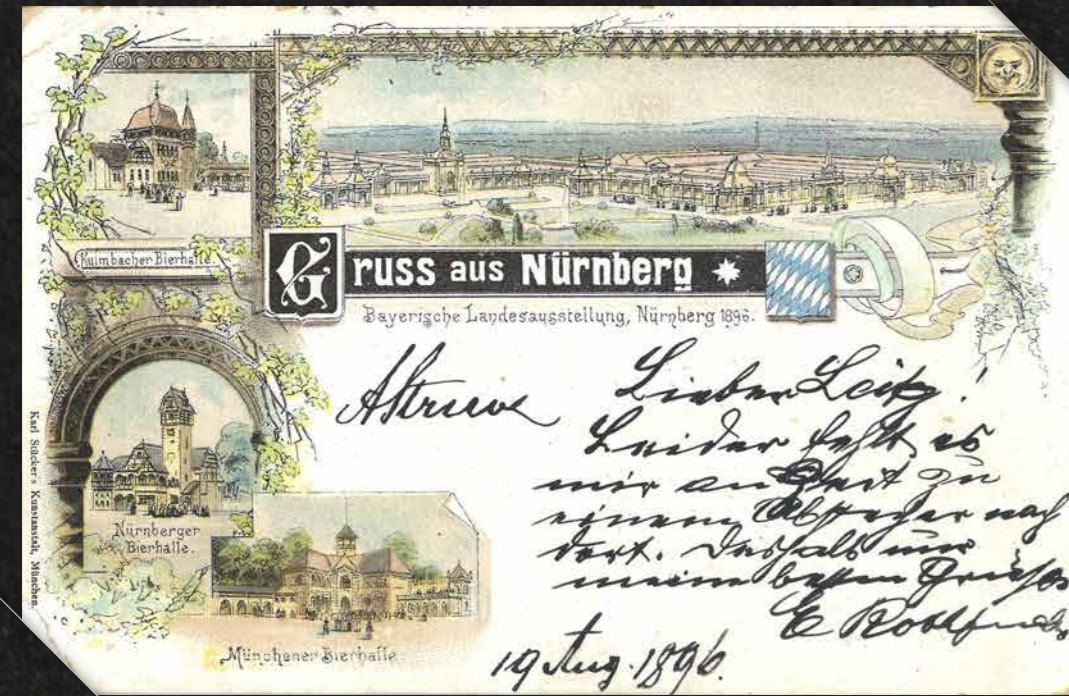 Kulmbacher Bierhalle.
Gruss aus Nürnberg
Bayerische Landesausstellung, Nürnberg 1896.
Karl Stücker's Kunstanstalt, München.
Nürnberger
Bierhalle.
Münchener Bierhalle.
AStruve
Lieber Leitz!
Leider fehlt es
mir an Zeit zu
einem Abstecher nach
dort. Deshalb nur
meine besten Grüsse
E
19 Aug. 1896.